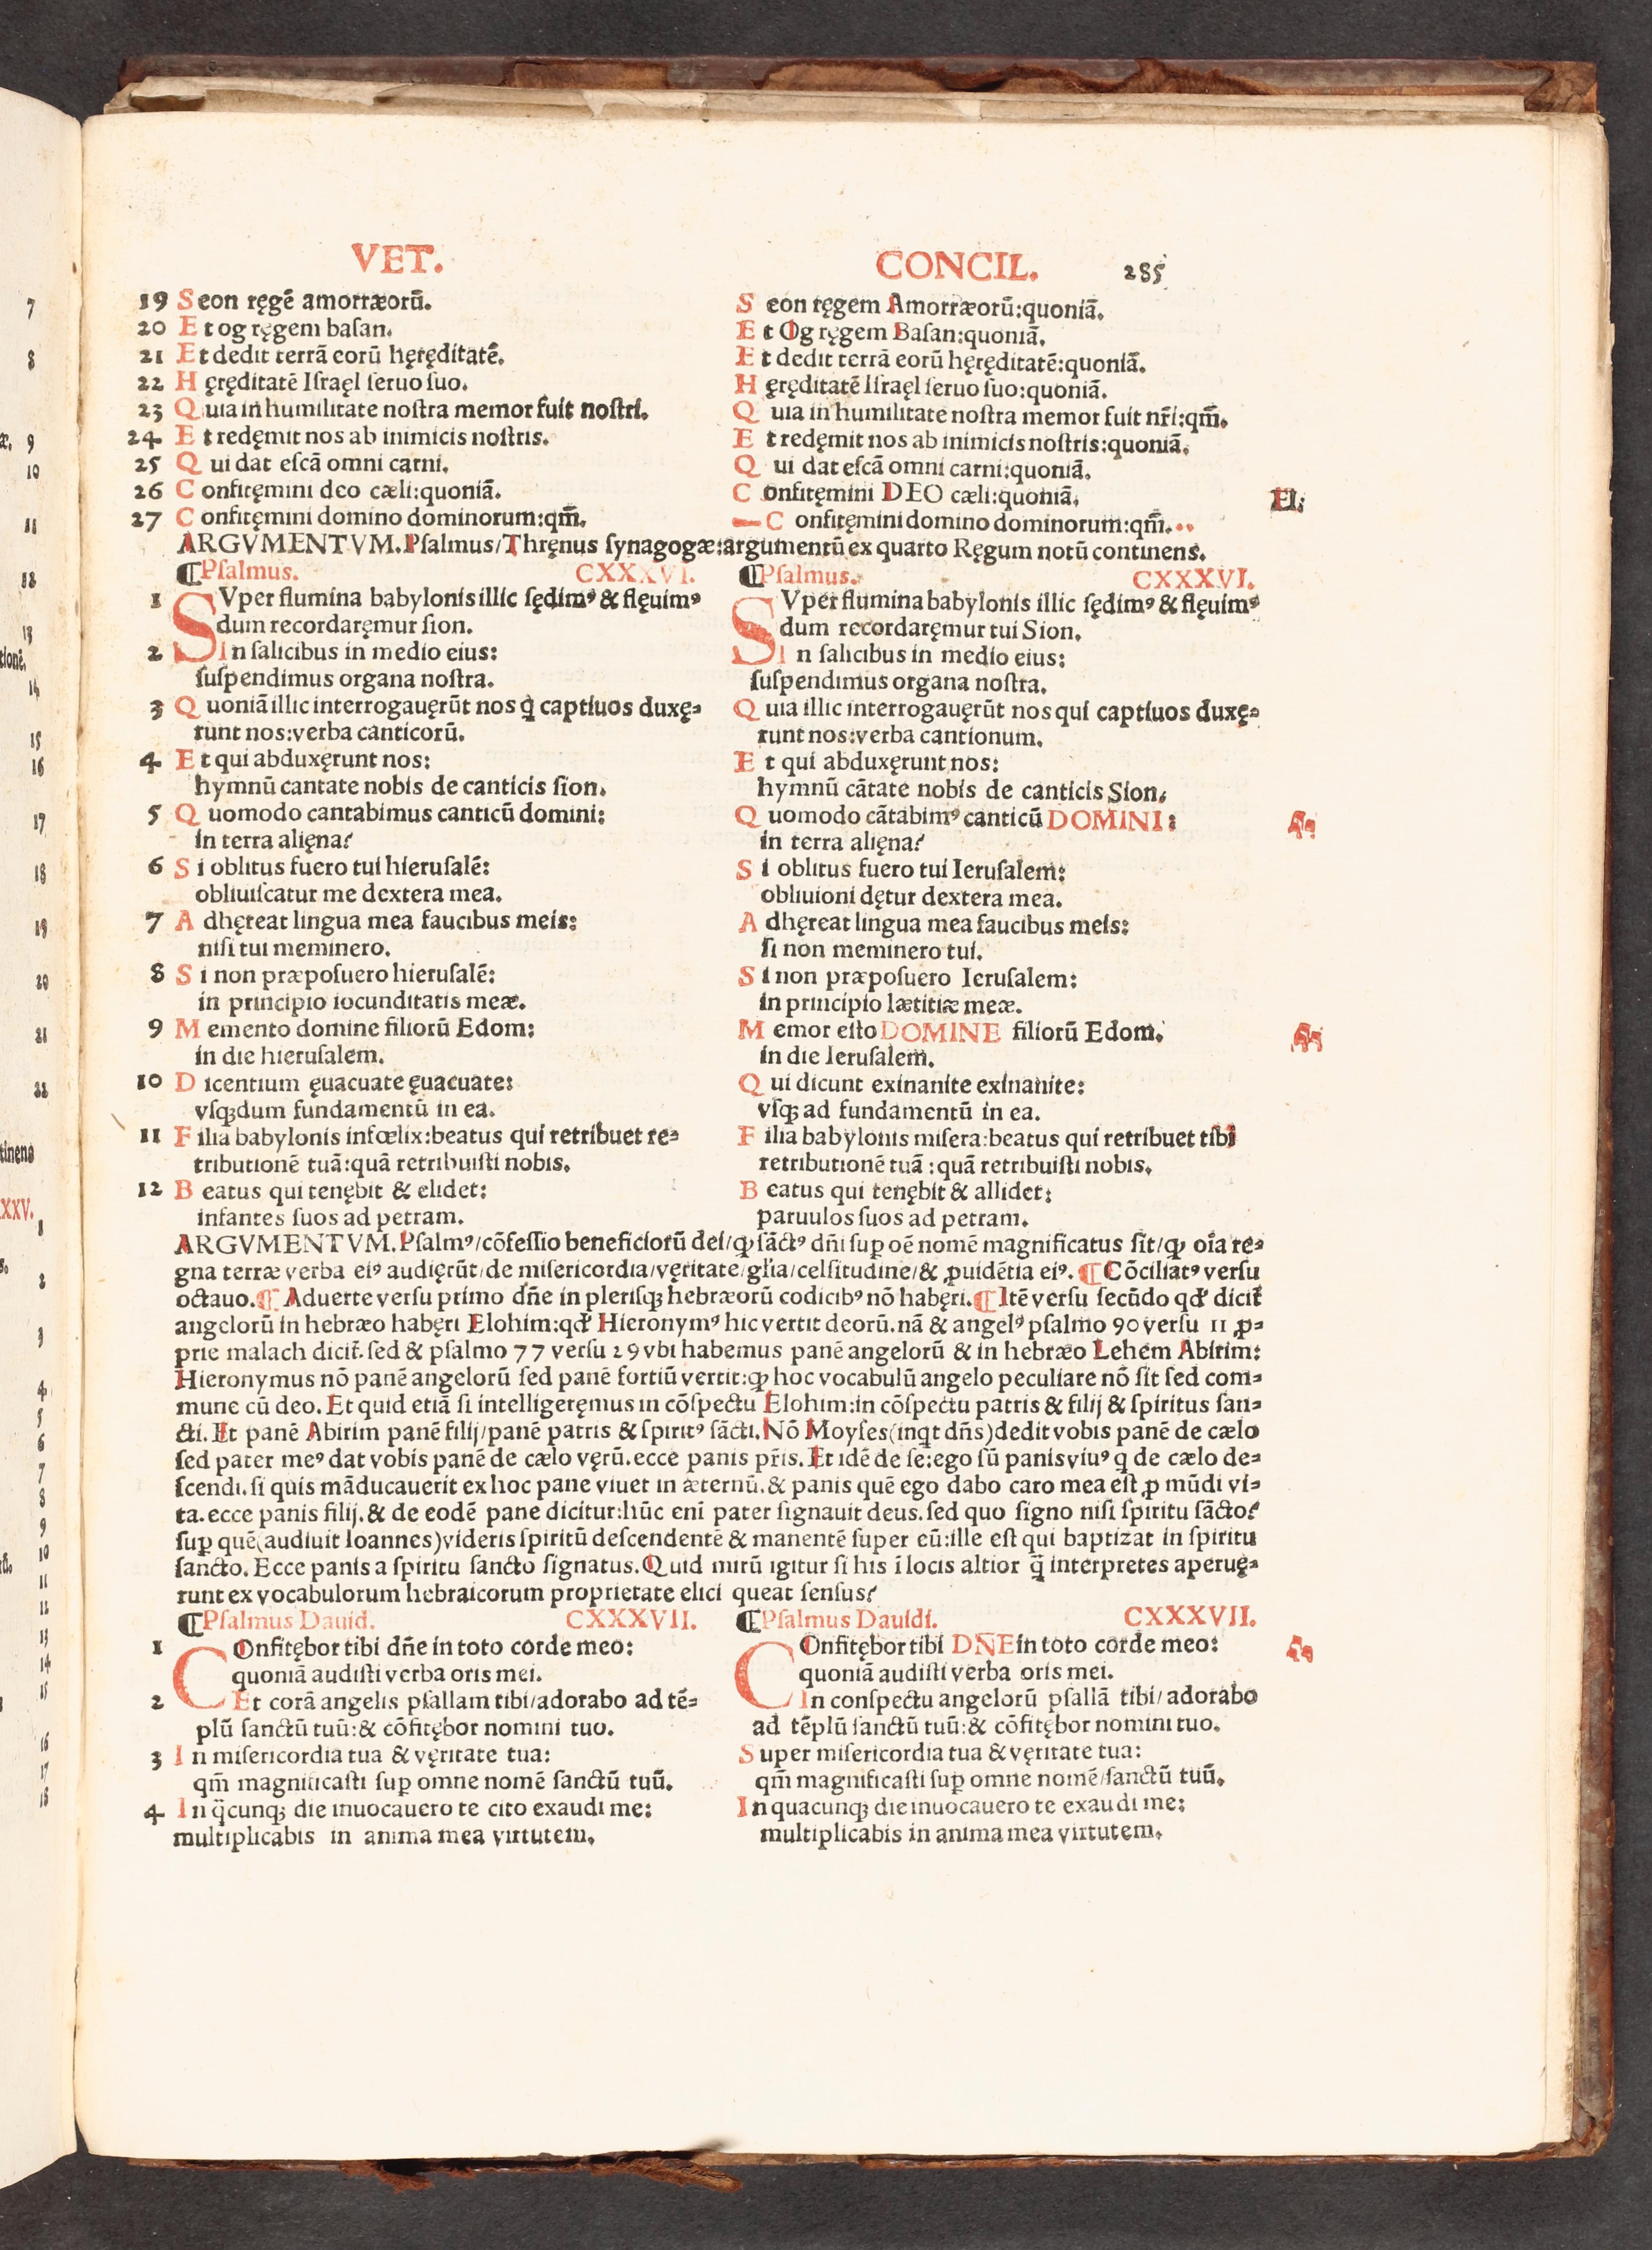 VET.
19 Seon ręgē amorræorū.
20 Et og ręgem baſan.
21 Et dedit terrā eorū hęręditatē.
22 Hęręditatē Iſraęl ſeruo ſuo.
23 Quia in humilitate noſtra memor fuit noſtri.
24 Et redęmit nos ab inimicis noſtris.
25 Qui dat eſcā omni carni.
26 Confitęmini deo cæli:quoniā.
27 Confitęmini domino dominorum:qm̄.
CONCIL. 285
Seon ręgem Amorræorū:quoniā.
Et Og ręgem Baſan:quoniā.
Et dedit terrā eorū hęręditatē:quoniā.
Hęręditatē Iſraęl ſeruo ſuo:quoniā.
Quia in humilitate noſtra memor fuit nr̄i:qm̄.
Et redęmit nos ab inimicis noſtris:quoniā.
Qui dat eſcā omni carni:quoniā.
Confitęmini DEO cæli:quoniā. El:
Confitęmini domino dominorum:qm̄.
ARGVMENTVM. Pſalmus/Thręnus ſynagogæ:argumentū ex quarto Ręgum notū continens.
¶Pſalmus. CXXXVI.
1 SVper flumina babylonis illic ſędimꝰ & flęuimꝰ
dum recordaręmur ſion.
2 In ſalicibus in medio eius:
ſuſpendimus organa noſtra.
3 Quoniā illic interrogauęrūt nos q̇ captiuos duxę⸗
runt nos:verba canticorū.
4 Et qui abduxęrunt nos:
hymnū cantate nobis de canticis ſion.
5 Quomodo cantabimus canticū domini:
in terra alięna?
6 Si oblitus fuero tui hieruſalē:
obliuiſcatur me dextera mea.
7 Adhęreat lingua mea faucibus meis:
niſi tui meminero.
8 Si non præpoſuero hieruſalē:
in principio iocunditatis meæ.
9 Memento domine filiorū Edom:
in die hieruſalem.
10 Dicentium ęuacuate ęuacuate:
vſqꝫ dum fundamentū in ea.
11 Filia babylonis infœlix:beatus qui retribuet re⸗
tributionē tuā:quā retribuiſti nobis.
12 Beatus qui tenębit & elidet:
infantes ſuos ad petram.
¶Pſalmus. CXXXVI.
SVper flumina babylonis illic ſędimꝰ & flęuimꝰ
dum recordaręmur tui Sion.
In ſalicibus in medio eius:
ſuſpendimus organa noſtra.
Quia illic interrogauęrūt nos qui captiuos duxę⸗
runt nos:verba cantionum.
Et qui abduxęrunt nos:
hymnū cātate nobis de canticis Sion.
Quomodo cātabimꝰ canticū DOMINI:
in terra alięna?
Si oblitus fuero tui Ieruſalem:
obliuioni dętur dextera mea.
Adhęreat lingua mea faucibus meis:
ſi non meminero tui.
Si non præpoſuero Ieruſalem:
in principio lætitiæ meæ.
Memor eſto DOMINE filiorū Edom.
in die Ieruſalem.
Qui dicunt exinanite exinanite:
vſqꝫ ad fundamentū in ea.
Filia babylonis miſera:beatus qui retribuet tibi
retributionē tuā:quā retribuiſti nobis.
Beatus qui tenębit & allidet:
paruulos ſuos ad petram.
ARGVMENTVM. Pſalmꝰ/cōfeſſio beneficiorū dei/ꝙ ſāctꝰ dn̄i ſuꝑ oē nomē magnificatus ſit/ꝙ oīa re⸗
gna terræ verba eiꝰ audięrūt/de miſericordia/vęritate/gl̄ia/celſitudine/& ꝓuidētia eiꝰ. ¶ Cōciliatꝰ verſu
octauo. ¶ Aduerte verſu primo dn̄e in pleriſqꝫ hebræorū codicibꝰ nō habęri. ¶ Itē verſu ſecūdo qđ dicit̄
angelorū in hebræo habęri Elohim:qđ Hieronymꝰ hic vertit deorū. nā & angelꝰ pſalmo 90 verſu 11 ꝓ⸗
prie malach dicit̄. ſed & pſalmo 77 verſu 29 vbi habemus panē angelorū & in hebræo Lehem Abirim:
Hieronymus nō panē angelorū ſed panē fortiū vertit:ꝙ hoc vocabulū angelo peculiare nō ſit ſed com⸗
mune cū deo. Et quid etiā ſi intelligeręmus in cōſpectu Elohim:in cōſpectu patris & filij & ſpiritus ſan⸗
cti. Et panē Abirim panē filij/panē patris & ſpiritꝰ ſācti. Nō Moyſes(inqt dn̄s)dedit vobis panē de cælo
ſed pater meꝰ dat vobis panē de cælo vęrū. ecce panis pr̄is. Et idē de ſe:ego ſū panis viuꝰ q̇ de cælo de⸗
ſcendi. ſi quis māducauerit ex hoc pane viuet in æternū. & panis quē ego dabo caro mea eſt ꝓ mūdi vi⸗
ta. ecce panis filij. & de eodē pane dicitur:hūc enī pater ſignauit deus. ſed quo ſigno niſi ſpiritu ſācto?
ſuꝑ quē(audiuit Ioannes)videris ſpiritū deſcendentē & manentē ſuper eū:ille eſt qui baptizat in ſpiritu
ſancto. Ecce panis a ſpiritu ſancto ſignatus. Quid mirū igitur ſi his ī locis altior q̄ interpretes aperuę⸗
runt ex vocabulorum hebraicorum proprietate elici queat ſenſus?
¶Pſalmus Dauid. CXXXVII.
1 COnfitębor tibi dn̄e in toto corde meo:
quoniā audiſti verba oris mei.
2 Et corā angelis pſallam tibi/adorabo ad tē⸗
plū ſanctū tuū:& cōfitębor nomini tuo.
3 In miſericordia tua & vęritate tua:
qm̄ magnificaſti ſuꝑ omne nomē ſanctū tuū.
4 In q̄cunqꝫ die inuocauero te cito exaudi me:
multiplicabis in anima mea virtutem.
¶Pſalmus Dauidi. CXXXVII.
COnfitębor tibi DN̄E in toto corde meo:
quoniā audiſti verba oris mei.
In conſpectu angelorū pſallā tibi/adorabo
ad tēplū ſanctū tuū:& cōfitębor nomini tuo.
Super miſericordia tua & vęritate tua:
qm̄ magnificaſti ſuꝑ omne nomē/ſanctū tuū.
In quacunqꝫ die inuocauero te exaudi me:
multiplicabis in anima mea virtutem.